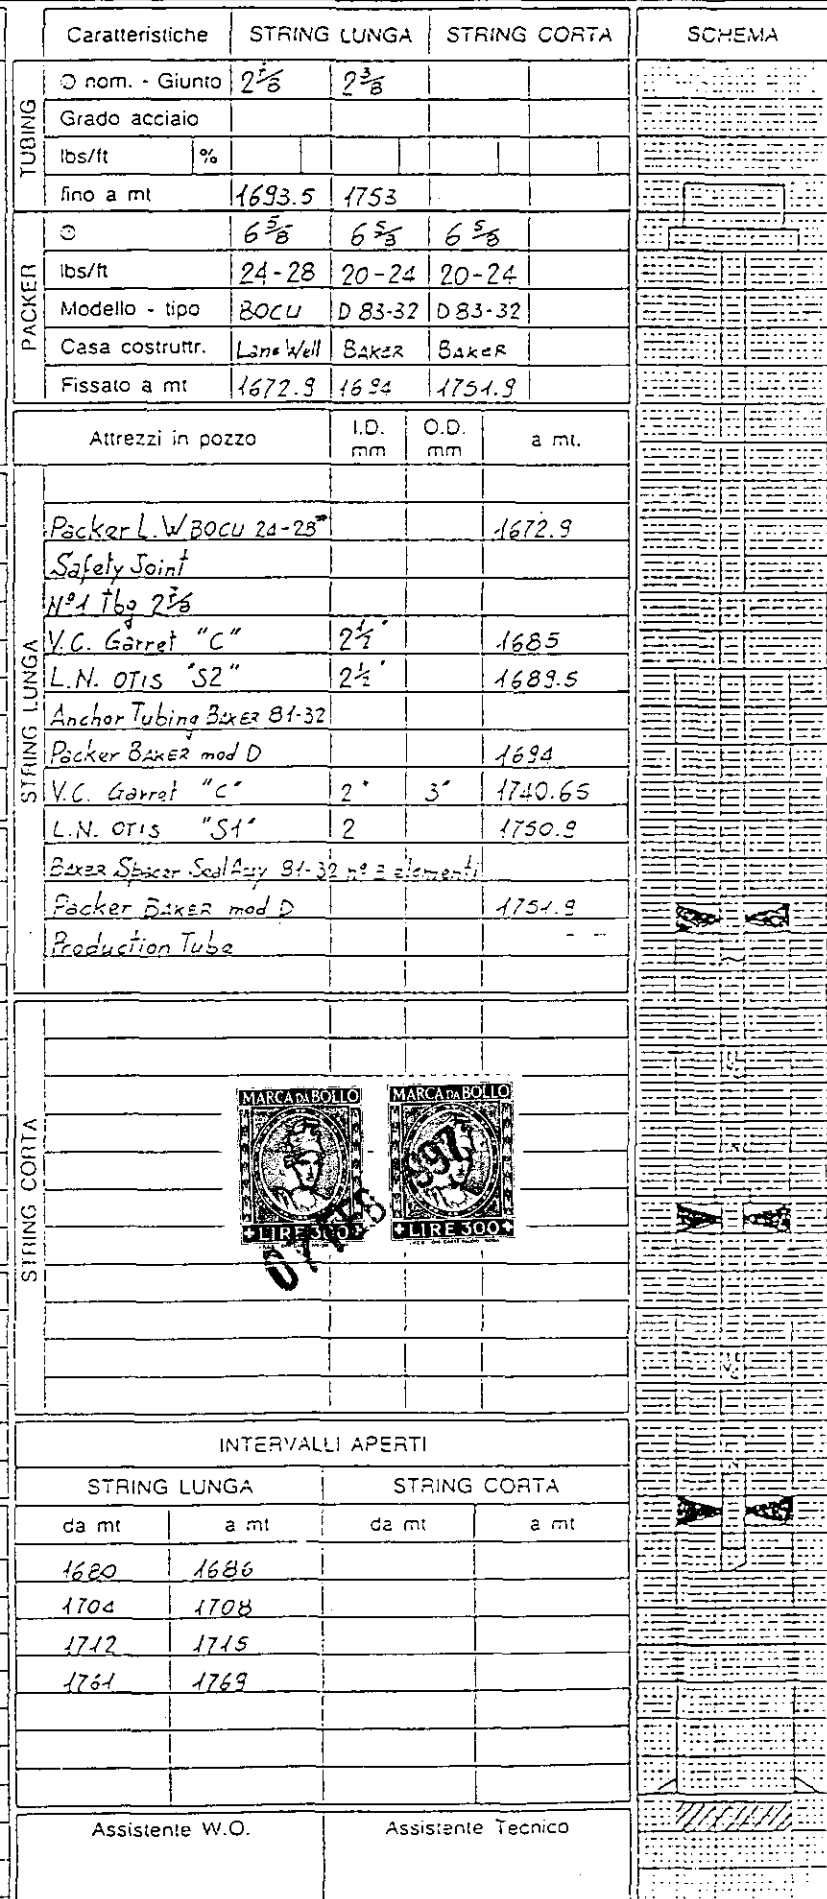 Caratteristiche STRING LUNGA STRING CORTA SCHEMA
TUBING
∅ nom. - Giunto 2 7/8 2 3/8
Grado acciaio
lbs/ft %
fino a mt 1693.5 1753
PACKER
∅ 6 5/8 6 5/8 6 5/8
lbs/ft 24-28 20-24 20-24
Modello - tipo BOCU D 83-32 D 83-32
Casa costruttr. Lane Well BAKER BAKER
Fissato a mt 1672.9 1694 1751.9
Attrezzi in pozzo I.D. mm O.D. mm a mt.
STRING LUNGA
Packer L.W BOCU 24-28" 1672.9
Safety Joint
N°1 Tbg 2 7/8
V.C. Garret "C" 2 1/2" 1685
L.N. OTIS "S2" 2 1/2" 1689.5
Anchor Tubing BAKER 81-32
Packer BAKER mod D 1694
V.C. Garret "C" 2" 3" 1740.65
L.N. OTIS "S1" 2 1750.9
BAKER Spacer Seal Assy 81-32 n° elementi
Packer BAKER mod D 1751.9
Production Tube
STRING CORTA
MARCA DA BOLLO MARCA DA BOLLO
LIRE 300 LIRE 300
FEB
INTERVALLI APERTI
STRING LUNGA STRING CORTA
da mt a mt da mt a mt
1680 1686
1704 1708
1712 1715
1761 1769
Assistente W.O. Assistente Tecnico